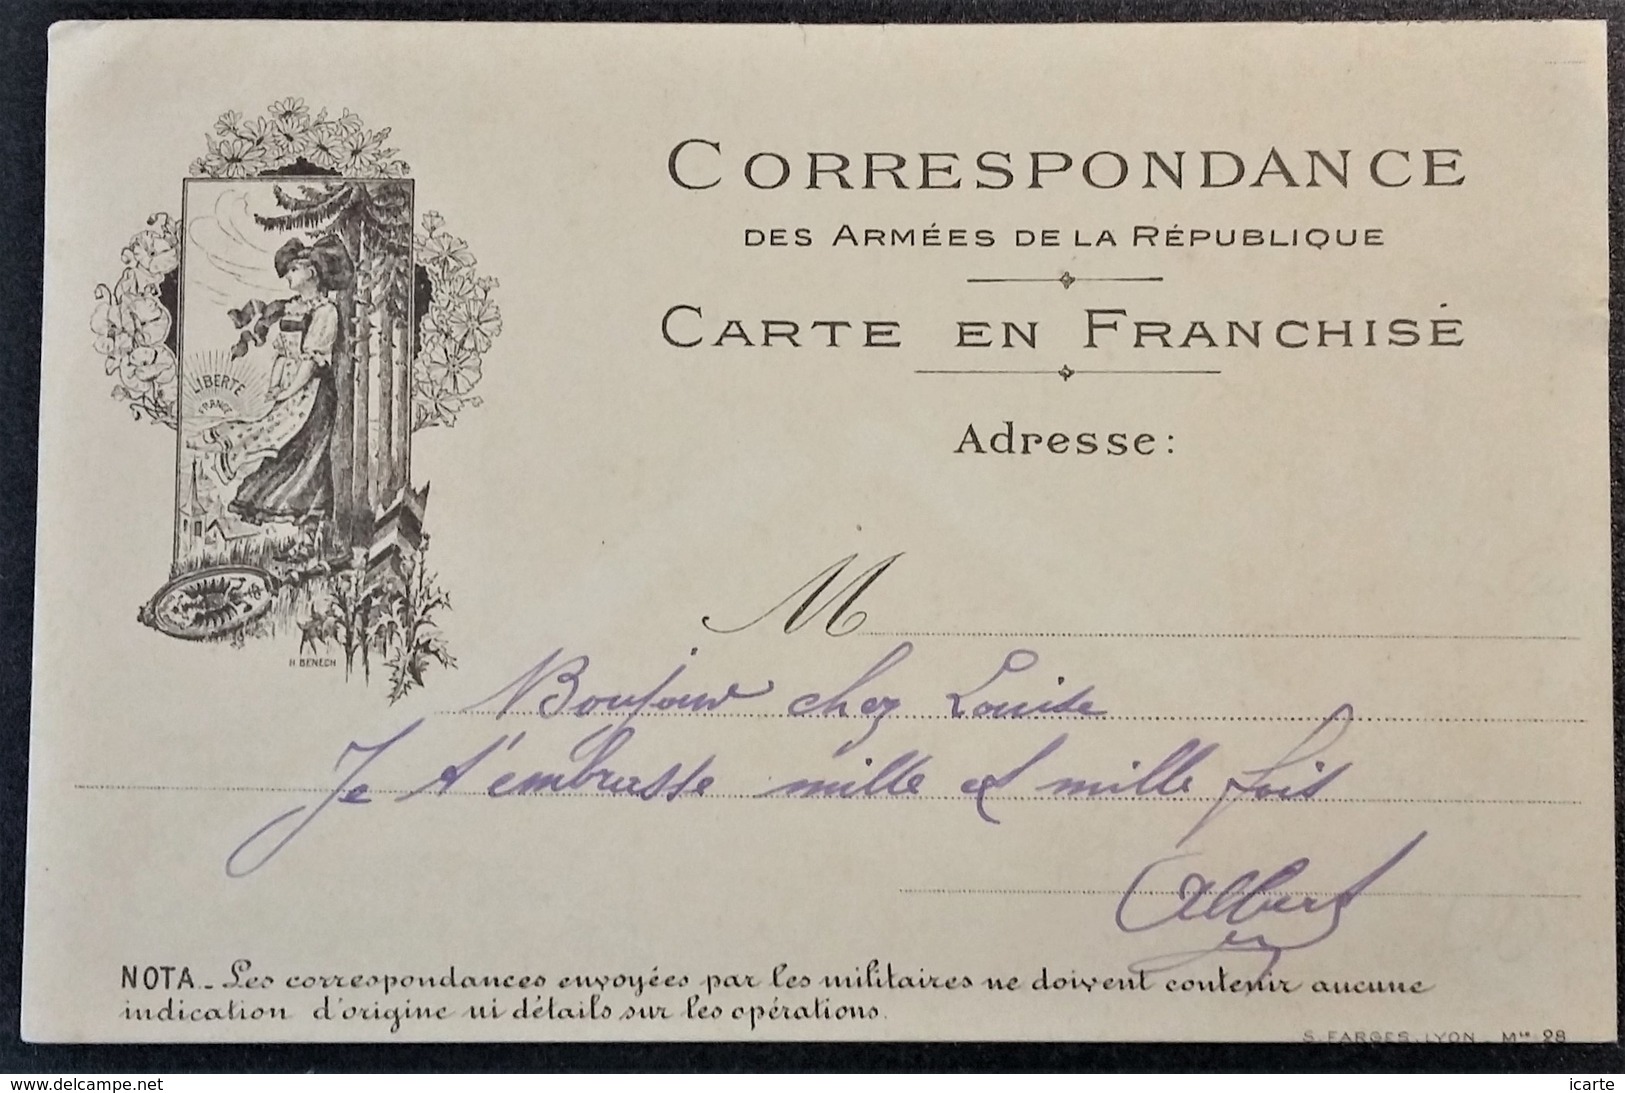 CORRESPONDANCE
DES ARMÉES DE LA RÉPUBLIQUE
CARTE EN FRANCHISE
Adresse:
LIBERTÉ
FRANCE
H BENECH
M
Bonjour chez Louise
Je t'embrasse mille et mille fois
Albert
NOTA _ Les correspondances envoyées par les militaires ne doivent contenir aucune
indication d'origine ni détails sur les opérations.
S. FARGES, LYON _ Mle 28
delcampe.net
icarte